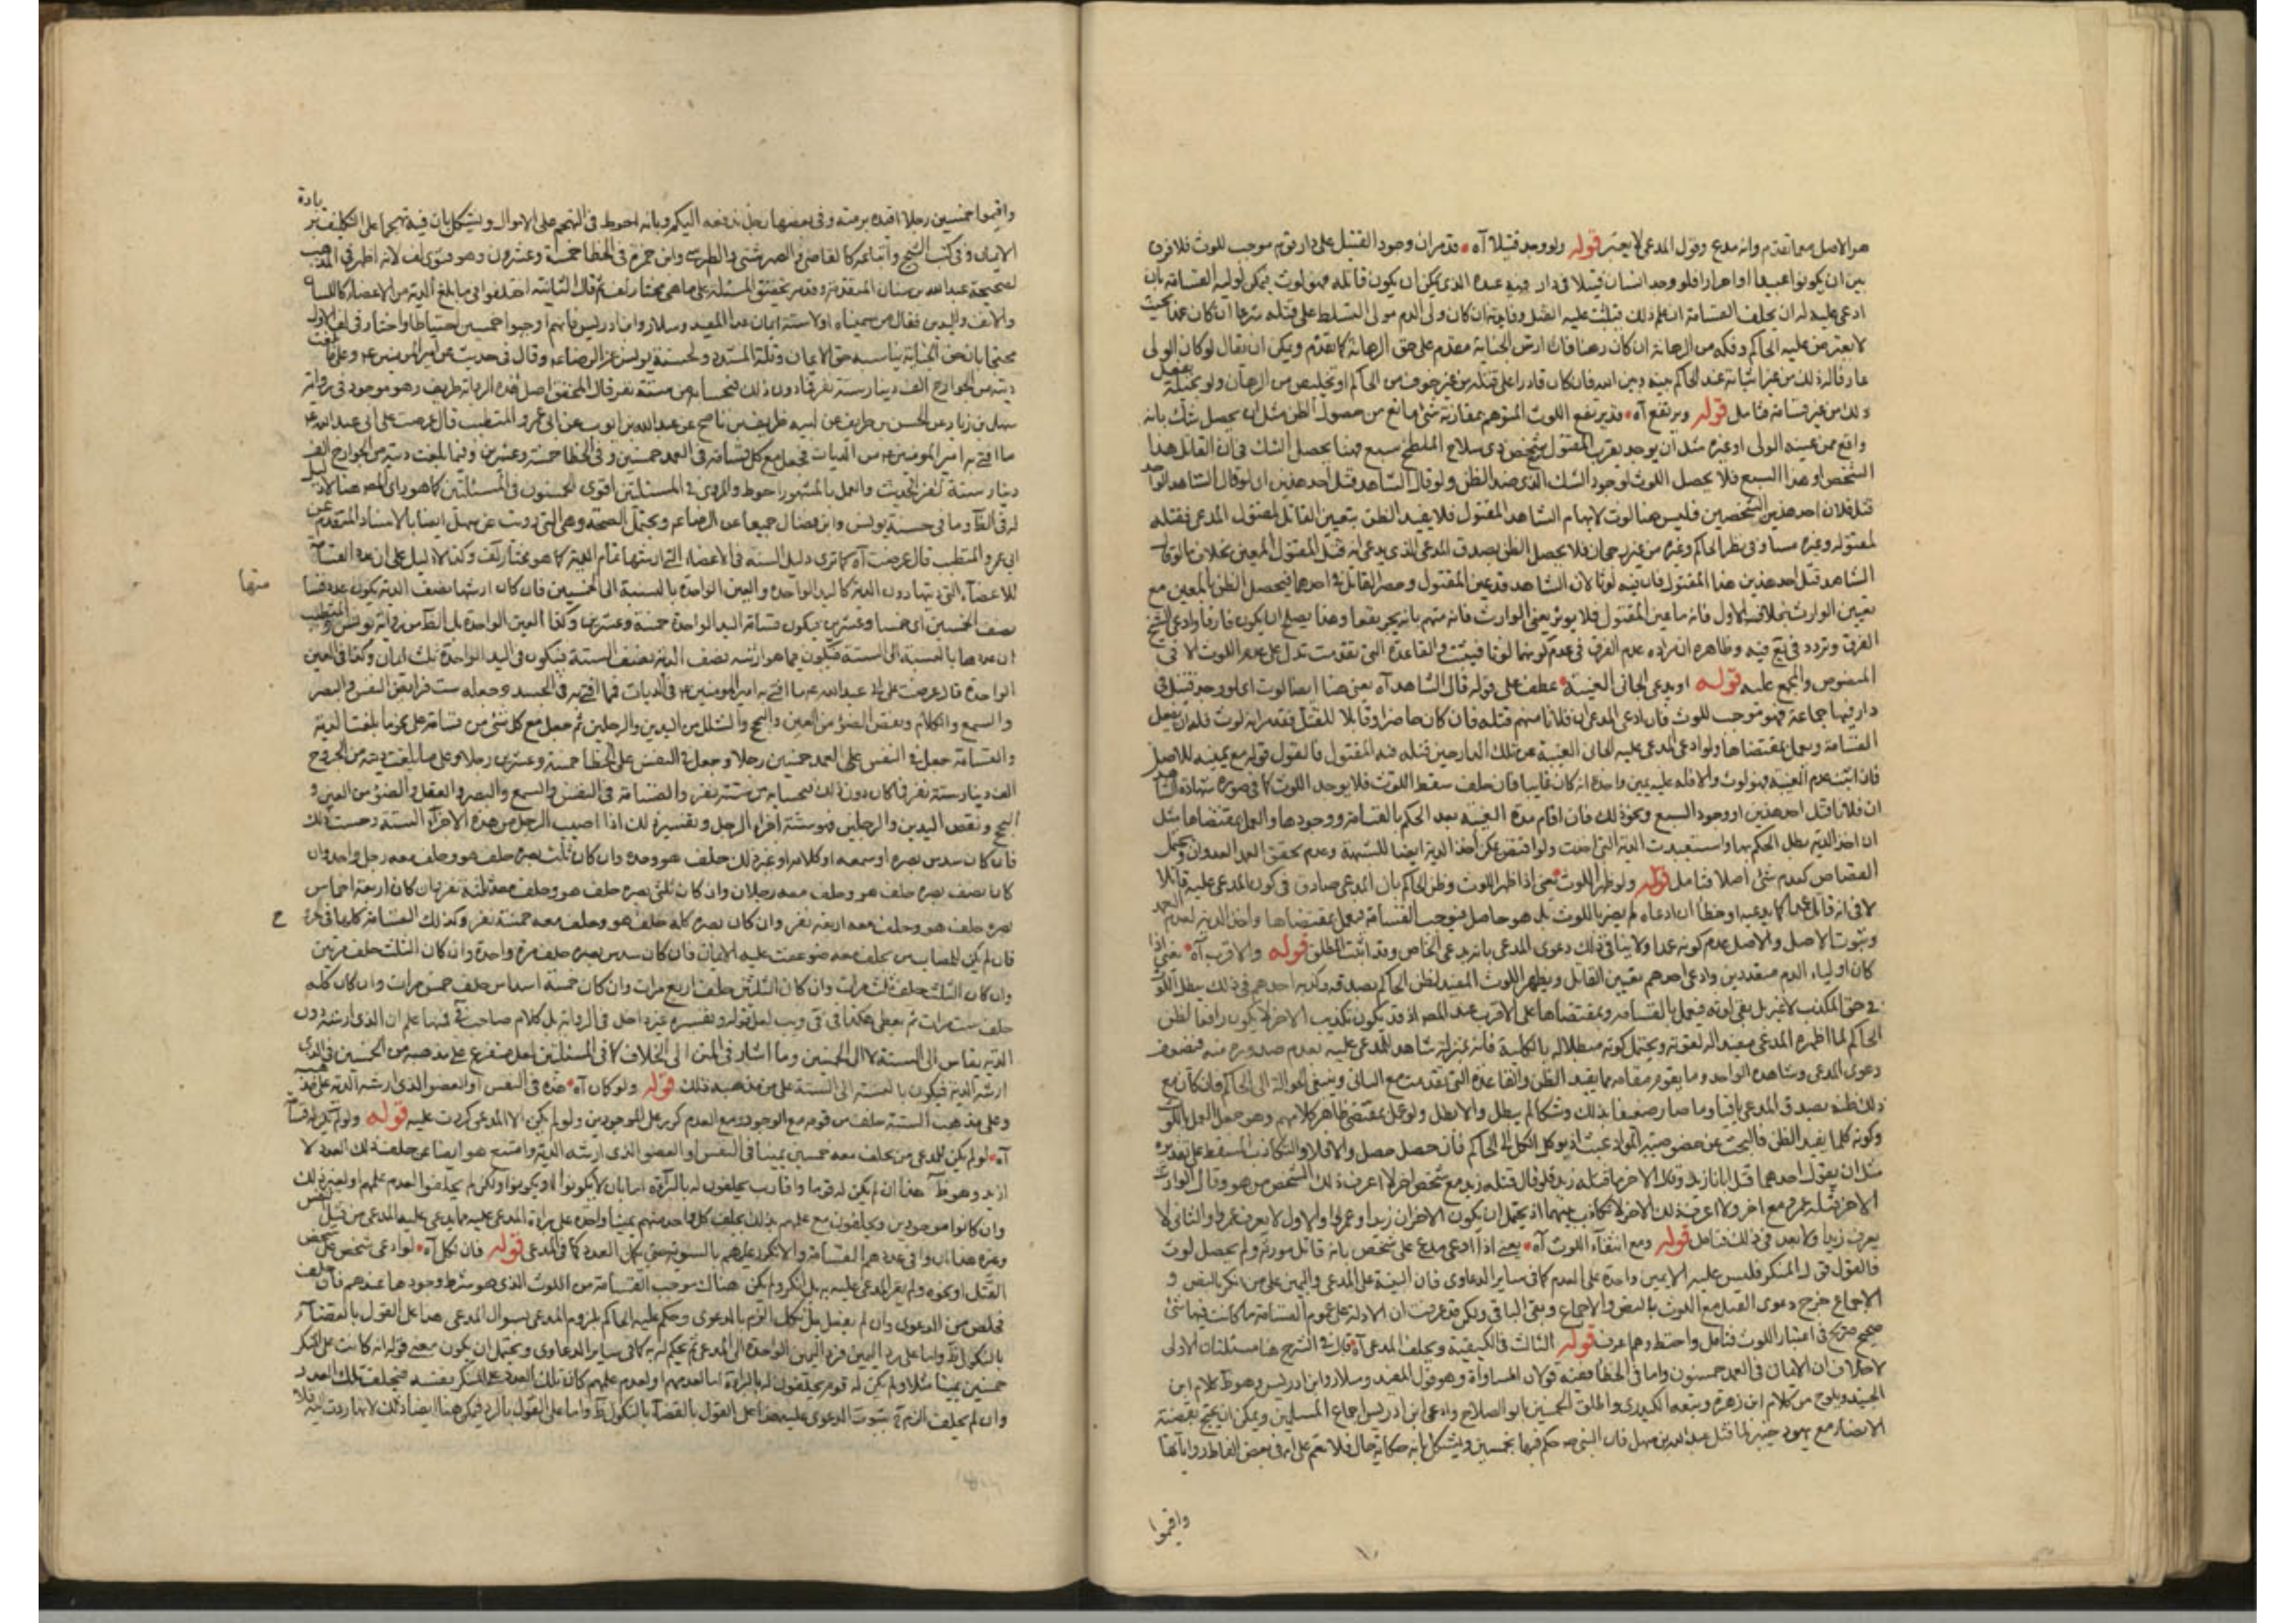 هو الاصل مع ما تقدم وانه مدع وقول المدعى لا يعتبر قوله ولو وجد قتيلا آه قد مر ان وجود القتيل على دار قوم موجب للوث فلا فرق
بين ان يكونوا عبيدا او احرارا فلو وجد انسان قتيلا فى دار فيه عبده الذى يمكن ان يكون قاتله فهو لوث يمكن لوليه القسامة بان
ادعى عليه له ان يحلف القسامة ان علم ذلك فيثبت عليه القتل وفايدته ان كان ولى الدم مولى التسلط على قتله شرعا ان كان عمدا بحيث
لا يعترض عليه الحاكم وفكه من الرهانة ان كان رهنا فان ارش الجناية مقدم على حق الرهانة كما تقدم ويمكن ان يقال لو كان الولى
ذلك من غير قسامة فتامل قوله ويرتفع آه قد يرتفع اللوث المتوهم بمقارنة شئ مانع من حصول الظن مثل ان يحصل شك بانه
واقع ممن عينه الولى او غيره مثل ان يوجد بقرب المقتول شخص ذى سلاح الملطخ سبع فهنا يحصل الشك فى ان القاتل هذا
الشخص او هذا السبع فلا يحصل اللوث لوجود الشك الذى ضد الظن ولو قال الشاهد قتل احد هذين ان لو قال الشاهد الواحد
قتل فلان احد هذين الشخصين فليس هنا لوث لابهام الشاهد المقتول فلا يفيد الظن بتعيين القاتل لمقتول المدعى فقتله
لمقتوله وغيره مساو فى نظر الحاكم وغيره من غير رجحان فلا يحصل الظن بصدق المدعى الذى يدعى انه قتل المقتول المعين بخلاف ما لو قال
الشاهد قتل احد هذين هذا المقتول فان فيه لوثا لان الشاهد قد عين المقتول وحصر القاتل فى احدهما فيحصل الظن بالمعين مع
تعيين الوارث بخلاف الاول فانه ما عين المقتول فلا يوثر تعيين الوارث فانه متهم بانه يجر نفعا وهذا يصلح ان يكون فارقا وادعى الشيخ
الفرق وتردد فى يع فيه وظاهره ان مراده عدم الفرق فى عدم كونهما لوثا فيثبت والقاعدة التى تقدمت تدل على عدم اللوث الا فى
المنصوص والمجمع عليه قوله او يدعى الجانى الغيبة عطف على قوله قال الشاهد آه يعنى هنا ايضا لوث اى لو وجد قتيل فى
دار فيها جماعة فهو موجب للوث فان ادعى المدعى ان فلانا منهم قتله فان كان حاضرا وقابلا للقتل فقد مر انه لوث فله ان يفعل
القسامة ويعمل بمقتضاها ولو ادعى المدعى عليه الجانى الغيبة عن تلك الدار حين قتله فيه المقتول فالقول قوله مع يمينه للاصل
ان فلانا قتل احد هذين او وجود السبع ونحو ذلك فان اقام مدة الغيبة بعد الحكم بالقسامة ووجودها والعمل بمقتضاها مثل
ان اخذ الدية بطل الحكم بها واستعيدت الدية التى اخذت ولو اقتص يمكن اخذ الدية ايضا للشبهة وعدم تحقق العمد العدوان ويحتمل
القصاص كعدم شئ اصلا فتامل قوله ولو ظهر اللوث يعنى اذا ظهر اللوث وظن الحاكم بان المدعى صادق فى كون المدعى عليه قاتلا
وثبوت الاصل والاصل عدم كونه عمدا ولا ينافى ذلك دعوى المدعى بانه يدعى الخاص وقد اثبت المطلق قوله والاقرب آه يعنى اذا
كان اولياء الدم متعددين وادعى احدهم بتعيين القاتل ويظهر اللوث المفيد لظن الحاكم بصدقه وكذبه احدهم فى ذلك بطل اللوث
الحاكم لما اظهره المدعى مفيدا له لقوته ويحتمل كونه مبطلا له بالكلية فانه بمنزلة شاهد للمدعى عليه بعدم صدوره منه فتضعف
دعوى المدعى وشاهده الواحد وما يقوم مقامه مما يفيد الظن والقاعدة التى تقدمت مع السابق وينبغى الحوالة الى الحاكم فان كان مع
ذلك ظنه بصدق المدعى باقيا وما صار ضعيفا بذلك وشكا لم يبطل والا بطل ولو عمل بمقتضى ظاهر كلامهم وهو جعل العمل باللوث
وكونه كلما يفيد الظن فالبحث عن خصوصية المواد عبث اذ يوكل الكل الى الحاكم فان حصل حصل والا فلا والتكاذب المسقط على تقديره
مثل ان يقول احدهما قتل ابانا زيد وقال الاخر ما قتله زيد فلو قال قتله زيد مع شخص اخر لا اعرفه ذلك الشخص من هو وقال الوارث
الاخر قتله عمرو مع اخر ولا اعرف ذلك الاخر لا تكاذب بينهما اذ يحتمل ان يكون الاخران زيدا وعمرا والاول لا يعرف عمرا والثانى لا
يعرف زيدا ولا بعد فى ذلك فتامل قوله ومع انتفاء اللوث آه يعنى اذا ادعى مدع على شخص بانه قاتل مورثه ولم يحصل لوث
فالقول قول المنكر فليس عليه الا يمين واحدة على العدم كما فى ساير الدعاوى فان البينة على المدعى واليمين على من انكر بالنص و
الاجماع خرج دعوى القتل مع اللوث بالنص والاجماع وبقى الباقى ولكن قد عرفت ان الادلة على عموم القسامة ما كانت فيها شئ
صحيح صريح فى اعتبار اللوث فتامل واحتط قوله الثالث فى الكيفية ويحلف المدعى آه قال فى الشرح هنا مسئلتان الاولى
لا خلاف ان الايمان فى العمد خمسون واما فى الخطأ ففيه قولان المساواة وهو قول المفيد وسلار وابن ادريس وهو ظ كلام ابن
الجنيد ويلوح من كلام ابن زهرة وتبعه الكيدرى واطلق الخمسين ابو الصلاح وادعى ابن ادريس اجماع المسلمين ويمكن ان يحتج بقضية
الانصار مع يهود خيبر لما قتل عبد الله بن سهل فان النبى ص حكم فيها بخمسين ويشكل بانه حكاية حال فلا تعم على ان فى بعض الفاظ رواياتها
واقيموا
واقيموا خمسين رجلا اقيده برمته وفى بعضها رجل ندفعه اليكم وبانه احوط فى التهجم على الاموال ويشكل بان فيه تهجما على التكليف بزيادة
الايمان وفى كتب الشيخ واتباعه كالقاضى والصهرشتى والطبرسى وابن حمزة فى الخطأ خمسة وعشرون وهو فتوى لف لانه اظهر فى المذهب
لصحيحة عبد الله بن سنان المتقدمة وقد مر تحقيق المسئلة على ما هى مختار لف ثم قال الثانية اختلفوا فيما بلغ الدية من الاعضاء كاللسان
والانف واليدين فقال من سميناه اولا ستة ايمان عدا المفيد وسلار وابن ادريس فانهم اوجبوا خمسين احتياطا واختار فى لف الاول
دية من الجوارح الف دينار ستة نفر فما دون ذلك فبحسابه من ستة نفر قال المحقق اصل هذه الرواية ظريف وهو موجود فى رواية
سهل بن زياد عن الحسن بن ظريف عن ابيه ظريف بن ناصح عن عبد الله بن ايوب عن ابى عمرو المتطبب قال عرضت على ابى عبد الله ع
ما افتى به امير المومنين ع من الديات فجعل مع كل قسامة فى العمد خمسين وفى الخطأ خمسة وعشرين وفيما بلغت دية من الجوارح الف
دينار ستة نفر الحديث والعمل بالمشهور احوط والمروى فى المسئلتين اقوى الخمسون فى المسئلتين كما هو راى المصـ هنا لا دليل
له فى الظ وما فى حسنة يونس وابن فضال جميعا عن الرضا ع ويحتمل الصحة وهى التى رويت عن سهل ايضا بالاسناد المتقدم عن
ابى عمرو المتطبب قال عرضت آه كما ترى دليل الستة فى الاعضاء التى ارشها تمام الدية كما هو مختار لف وكذا لا دليل على ان عدد القسامة
للاعضاء التى ديتها دون الدية كاليد الواحدة والعين الواحدة بالنسبة الى الخمسين فان كان ارشها نصف الدية يكون عدد قسامتها
منها
نصف الخمسين اى خمسا وعشرين فيكون قسامة اليد الواحدة خمسة وعشرين وكذا العين الواحدة بل الظ من رواية يونس والمتطبب
ان عددها بالنسبة الى الستة فيكون فيما هو ارشه نصف الدية نصف الستة فيكون فى اليد الواحدة ثلث ايمان وكذا فى العين
الواحدة قال عرضت على ابى عبد الله ع ما افتى به امير المومنين ع فى الديات فما افتى به فى الجسد وجعله ست فرايض النفس والبصر
والسمع والكلام ونقص الضوء من العين والبحح والشلل من اليدين والرجلين ثم جعل مع كل شئ من قسامة على نحو ما بلغت الدية
والقسامة جعل فى النفس على العمد خمسين رجلا وجعل فى النفس على الخطأ خمسة وعشرين رجلا وعلى ما بلغت ديته من الجروح
الف دينار ستة نفر فما كان دون ذلك فبحسابه من ستة نفر والقسامة فى النفس والسمع والبصر والعقل والضوء من العين و
البحح ونقص اليدين والرجلين فهو ستة اجزاء الرجل وتفسير ذلك اذا اصيب الرجل من هذه الاجزاء الستة وحسب ذلك
فان كان سدس بصره او سمعه او كلامه او غير ذلك حلف هو وحده وان كان ثلث بصره حلف هو وحلف معه رجل واحد وان
كان نصف بصره حلف هو وحلف معه رجلان وان كان ثلثى بصره حلف هو وحلف معه ثلثة نفر وان كان اربعة اخماس
بصره حلف هو وحلف معه اربعة نفر وان كان بصره كله حلف هو وحلف معه خمسة نفر وكذلك القسامة كلها فى الجروح
فان لم يكن للمصاب من يحلف معه ضوعفت عليه الايمان فان كان سدس بصره حلف مرة واحدة وان كان الثلث حلف مرتين
وان كان النصف حلف ثلث مرات وان كان الثلثين حلف اربع مرات وان كان خمسة اسداس حلف خمس مرات وان كان كله
حلف ست مرات ثم يعطى
الدية يقاس الى الستة لا الى الخمسين وما اشار فى المتن الى الخلاف
ارشه الدية فيكون بالنسبة الى الستة على من مذهبه ذلك قوله ولو كان آه هذه فى النفس او العضو الذى ارشه الدية على مذهبه
وعلى مذهب الستة حلف من قومه مع الوجود ومع العدم كرر على الموجودين ولو لم يكن الا المدعى كررت عليه قوله ولو لم يكن له قسامة
آه لو لم يكن للمدعى من يحلف معه خمسين يمينا فى النفس او العضو الذى ارشه الدية وامتنع هو ايضا عن حلف ذلك العدد لا
ازيد وهو ظ هذا ان لم يكن له قوم واقارب يحلفون له بالبراءة اما بان لا يكونوا او يكونوا ولكن لم يحلفوا لعدم علمهم او لغير ذلك
وان كانوا موجودين ويحلفون مع علمهم بذلك يحلف كل واحد منهم يمينا واحدة على براءة المدعى عليه مما يدعى عليه المدعى من قتل النفس
وغيره هذا ان وافى عددهم القسامة والا تكرر عليهم بالسوية حتى يكمل العدد كما فى المدعى قوله فان نكل آه لو ادعى شخص على شخص
القتل او نحوه ولم يقر المدعى عليه به بل انكر ولم يكن هناك موجب القسامة من اللوث الذى هو شرط وجودها عندهم فان حلف
فخلص من الدعوى وان لم يفعل بل نكل الزم بالدعوى وحكم عليه الحاكم بلزوم المدعى بسوال المدعى هذا على القول بالقضاء
بالنكول ظ واما على رد اليمين فرد اليمين الواحدة الى المدعى ثم يحكم له به كما فى ساير الدعاوى ويحتمل ان يكون معنى قوله انه كانت على المنكر
خمسين يمينا مثلا ولم يكن له قوم يحلفون له بالبراءة اما لعدمهم او لعدم علمهم كان تلك العدد على المنكر بنفسه فيحلف تلك العدد
وان لم يحلف الزم ثبوت الدعوى عليه هذا على القول بالقضاء بالنكول ظ واما على القول بالرد فيمكن هنا ايضا ذلك لانها ردت اليه فلا